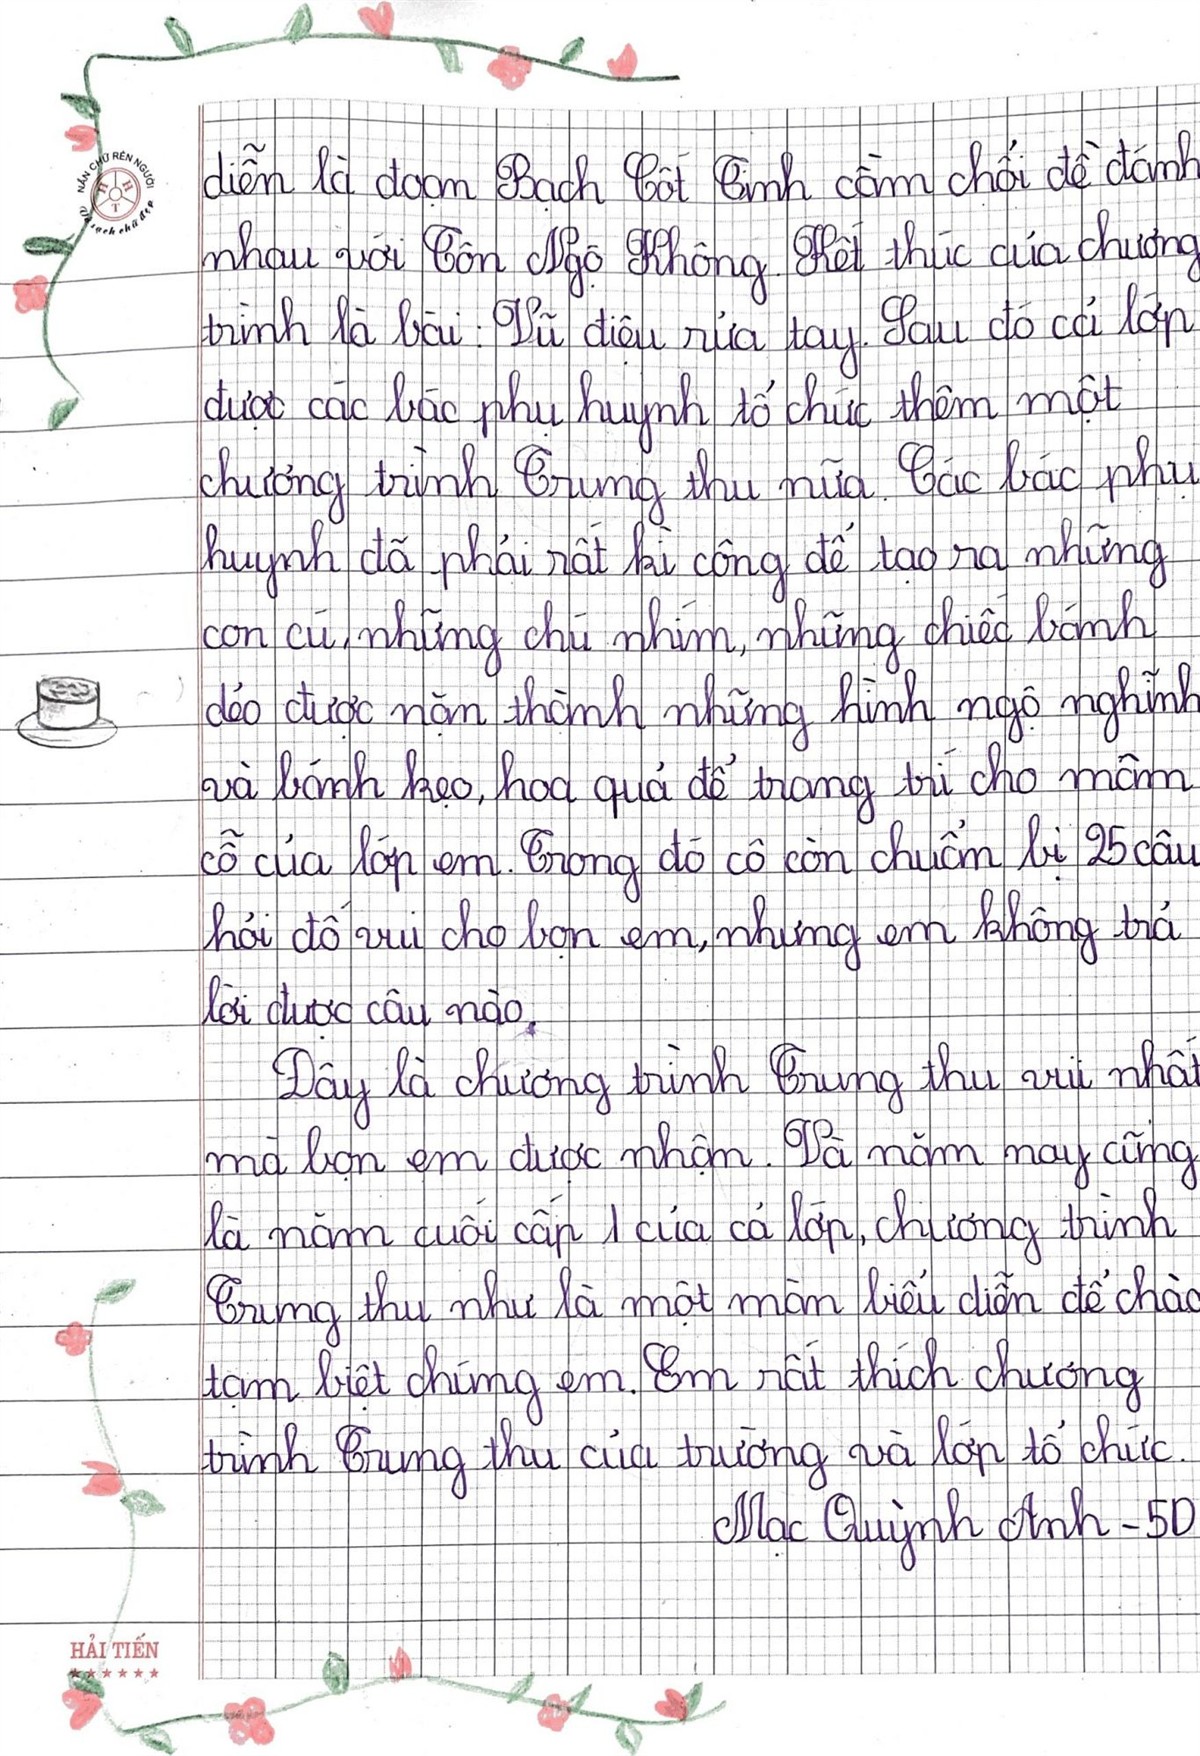 NẮN CHỮ RÈN NGƯỜI
H H T
Vở sạch chữ đẹp
diễn là đoạn Bạch Cốt Tinh cầm chổi để đánh
nhau với Tôn Ngộ Không. Kết thúc của chương
trình là bài: Vũ điệu rửa tay. Sau đó cả lớp
được các bác phụ huynh tổ chức thêm một
chương trình Trung thu nữa. Các bác phụ
huynh đã phải rất kì công để tạo ra những
con cú, những chú nhím, những chiếc bánh
dẻo được nặn thành những hình ngộ nghĩnh
và bánh kẹo, hoa quả để trang trí cho mâm
cỗ của lớp em. Trong đó cô còn chuẩn bị 25 câu
hỏi đố vui cho bọn em, nhưng em không trả
lời được câu nào.
Đây là chương trình Trung thu vui nhất
mà bọn em được nhận. Và năm nay cũng
là năm cuối cấp 1 của cả lớp, chương trình
Trung thu như là một màn biểu diễn để chào
tạm biệt chúng em. Em rất thích chương
trình Trung thu của trường và lớp tổ chức.
Mạc Quỳnh Anh - 5D
HẢI TIẾN